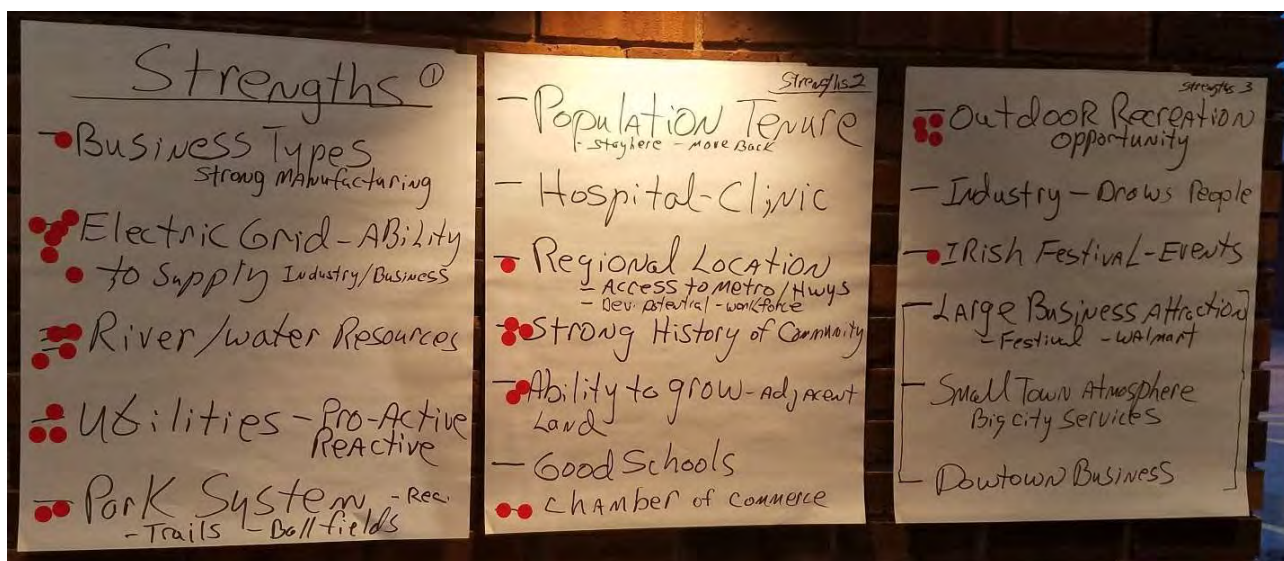 Strengths ①
- Business Types
Strong Manufacturing
- Electric Grid - Ability
to Supply Industry/Business
- River/water Resources
- Utilities - Pro-Active
ReActive
- Park System - Rec.
- Trails - Ball fields
Strengths 2
- Population Tenure
- Stay here - Move Back
- Hospital-Clinic
- Regional Location
- Access to Metro/Hwys
- Dev. potential - workforce
- Strong History of Community
- Ability to grow - Adjacent
Land
- Good Schools
- Chamber of Commerce
Strengths 3
- Outdoor Recreation
Opportunity
- Industry - Draws People
- Irish Festival - Events
- Large Business Attraction
- Festival - Walmart
- Small Town Atmosphere
Big City Services
- Dowtown Business